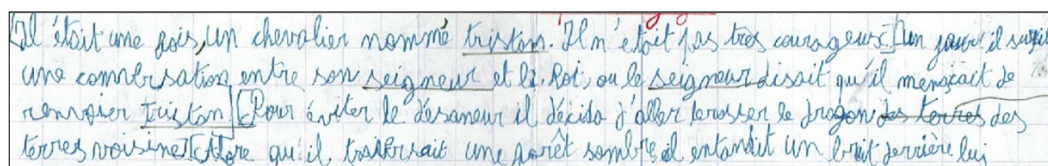 [Il était une fois, un chevalier nommé triston. Il n'était pas tres courageux.] [un jour il surpit
une conversation entre son seigneur et le Roi, ou le seigneur disait qu'il mençait de
renvoier triston] [Pour éviter le désaneur il décida d'aller terosser le dragon des terres des
terres voisine] [Alore qu'il traversait une forêt sombre il entandit un bruit derrière lui